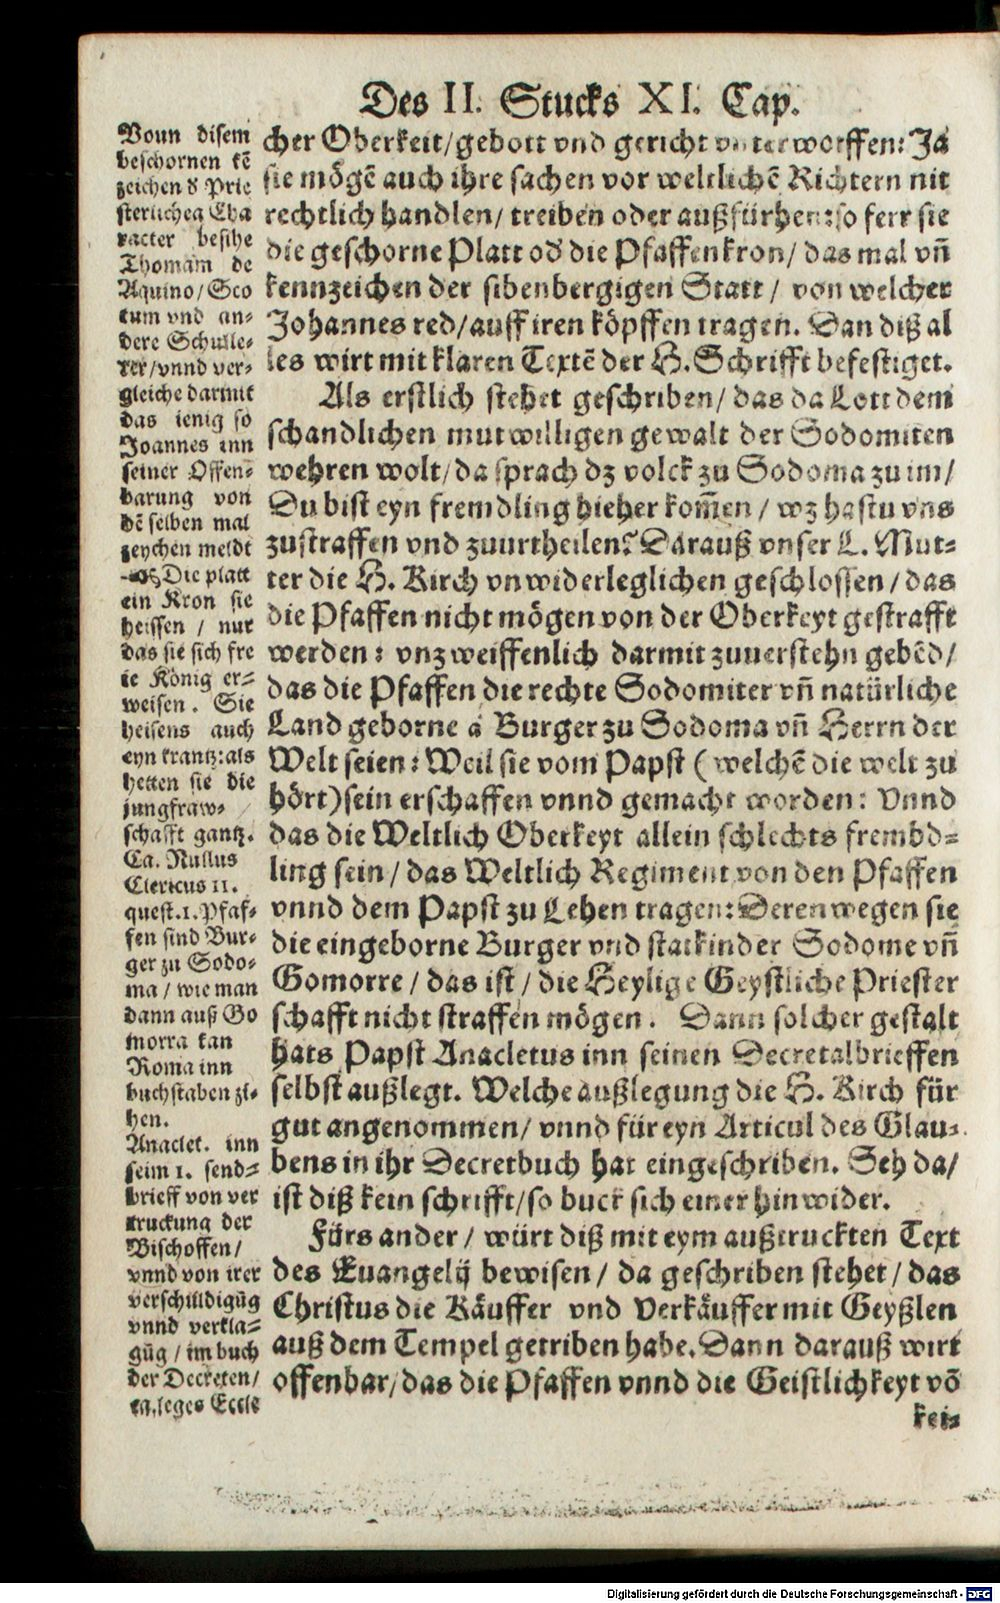 Des II. Stucks XI. Cap.
cher Oberkeit/gebott vnd gericht vnterworffen: Ja
sie mögē auch ihre sachen vor weltlichē Richtern nit
rechtlich handlen/ treiben oder außfürhen:so ferr sie
die geschorne Platt od die Pfaffenkron/ das mal vn̄
kennzeichen der sibenbergigen Statt / von welcher
Johannes red/auff iren köpffen tragen. Dan diß al
les wirt mit klaren Textē der H. Schrifft befestiget.
Als erstlich stehet geschriben/ das da Lott dem
schandlichen mutwilligen gewalt der Sodomiten
wehren wolt/da sprach dz volck zu Sodoma zu im/
Du bist eyn fremdling hieher kom̄en / wz hastu vns
zustraffen vnd zuurtheilen? Darauß vnser L. Mut-
ter die H. Kirch vnwiderleglichen geschlossen/das
die Pfaffen nicht mögen von der Oberkeyt gestrafft
werden: vnzweiffenlich darmit zuuerstehn gebēd/
das die Pfaffen die rechte Sodomiter vn̄ natürliche
Landgeborne Burger zu Sodoma vn̄ Herrn der
Welt seien: Weil sie vom Papst (welchē die welt zu
hört)sein erschaffen vnnd gemacht worden: Vnnd
das die Weltlich Oberkeyt allein schlechts frembd-
ling sein/das Weltlich Regiment von den Pfaffen
vnnd dem Papst zu Lehen tragen: Derenwegen sie
die eingeborne Burger vnd statkinder Sodome vn̄
Gomorre / das ist / die Heylige Geystliche Priester
schafft nicht straffen mögen. Dann solcher gestalt
hats Papst Anacletus inn seinen Decretalbrieffen
selbst außlegt. Welche außlegung die H. Kirch für
gut angenommen/ vnnd für eyn Articul des Glau-
bens in ihr Decretbuch hat eingeschriben. Seh da/
ist diß kein schrifft/so buck sich einer hinwider.
Fürs ander / würt diß mit eym außtruckten Text
des Euangelij bewisen / da geschriben stehet / das
Christus die Käuffer vnd Verkäuffer mit Geyßlen
auß dem Tempel getriben habe. Dann darauß wirt
offenbar/das die Pfaffen vnnd die Geistlichkeyt vō
kei-
Vonn disem
beschornen kē
zeichen d Prie
sterlichen Cha
racter besihe
Thomam de
Aquino/Sco
tum vnd an-
dere Schulle-
rer/vnnd ver-
gleiche darmit
das ienig so
Joannes inn
seiner Offen-
barung von
dē selben mal
zeychen meldt
Die platt
ein Kron sie
heissen / nur
das sie sich fre
ie König er-
weisen. Sie
heisens auch
eyn krantz:als
hetten sie die
jungfraw-
schafft gantz.
Ca. Nullus
Clericus 11.
quest.1.Pfaf-
fen sind Bur-
ger zu Sodo-
ma / wie man
dann auß Go
morra kan
Roma inn
buchstaben zi-
hen.
Anaclet. inn
seim 1. send-
brieff von ver
truckung der
Bischoffen/
vnnd von irer
verschuldigūg
vnnd verkla-
gūg / im buch
der Decreten/
ca.leges Eccle
Digitalisierung gefördert durch die Deutsche Forschungsgemeinschaft - DFG